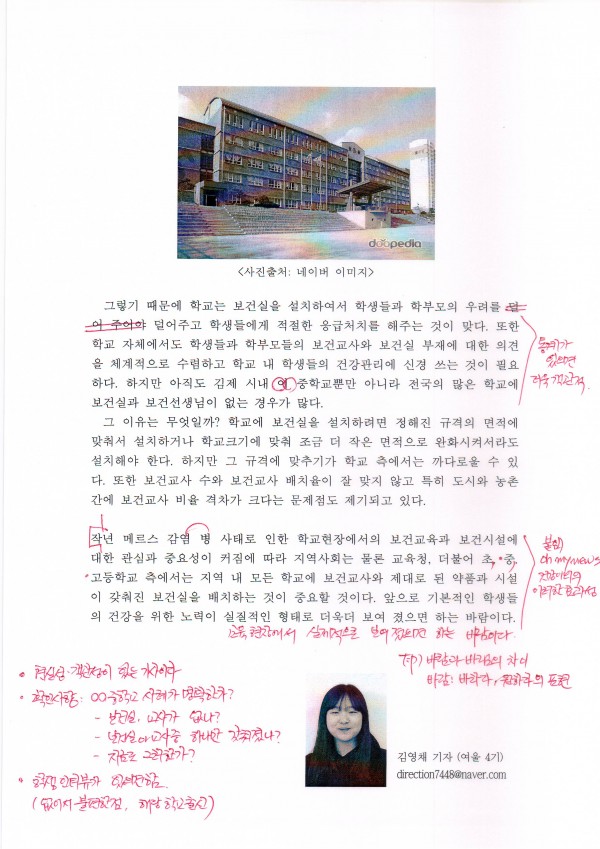 doopedia
<사진출처: 네이버 이미지>
그렇기 때문에 학교는 보건실을 설치하여서 학생들과 학부모의 우려를 덜
어 주어야 덜어주고 학생들에게 적절한 응급처치를 해주는 것이 맞다. 또한
학교 자체에서도 학생들과 학부모들의 보건교사와 보건실 부재에 대한 의견
을 체계적으로 수렴하고 학교 내 학생들의 건강관리에 신경 쓰는 것이 필요
하다. 하지만 아직도 김제 시내 여 중학교뿐만 아니라 전국의 많은 학교에
보건실과 보건선생님이 없는 경우가 많다.
있으면
더욱 객관적
그 이유는 무엇일까? 학교에 보건실을 설치하려면 정해진 규격의 면적에
맞춰서 설치하거나 학교크기에 맞춰 조금 더 작은 면적으로 완화시켜서라도
설치해야 한다. 하지만 그 규격에 맞추기가 학교 측에서는 까다로울 수 있
다. 또한 보건교사 수와 보건교사 배치율이 잘 맞지 않고 특히 도시와 농촌
간에 보건교사 비율 격차가 크다는 문제점도 제기되고 있다.
작년 메르스 감염 병 사태로 인한 학교현장에서의 보건교육과 보건시설에
대한 관심과 중요성이 커짐에 따라 지역사회는 물론 교육청, 더불어 초, 중,
고등학교 측에서는 지역 내 모든 학교에 보건교사와 제대로 된 약품과 시설
이 갖춰진 보건실을 배치하는 것이 중요할 것이다. 앞으로 기본적인 학생들
의 건강을 위한 노력이 실질적인 형태로 더욱더 보여 졌으면 하는 바람이다.
교육현장에서 실제적으로 보여졌으면 하는 바람이다.
붙임
oh my news
Tip) 바람과 바램의 차이
바람: 바라다,
• 현실성·객관성이 있는 기사이다
• 확인사항: 00중학교 사례가 명확한가?
- 보건실, 교사가 없나?
- 보건실 or 교사중 하나만 갖춰졌나?
- 치료는 그럼 한가?
• 학생 인터뷰가
(없어서 불편한점, 해당 학교 출신)
김영채 기자 (여울 4기)
direction7448@naver.com